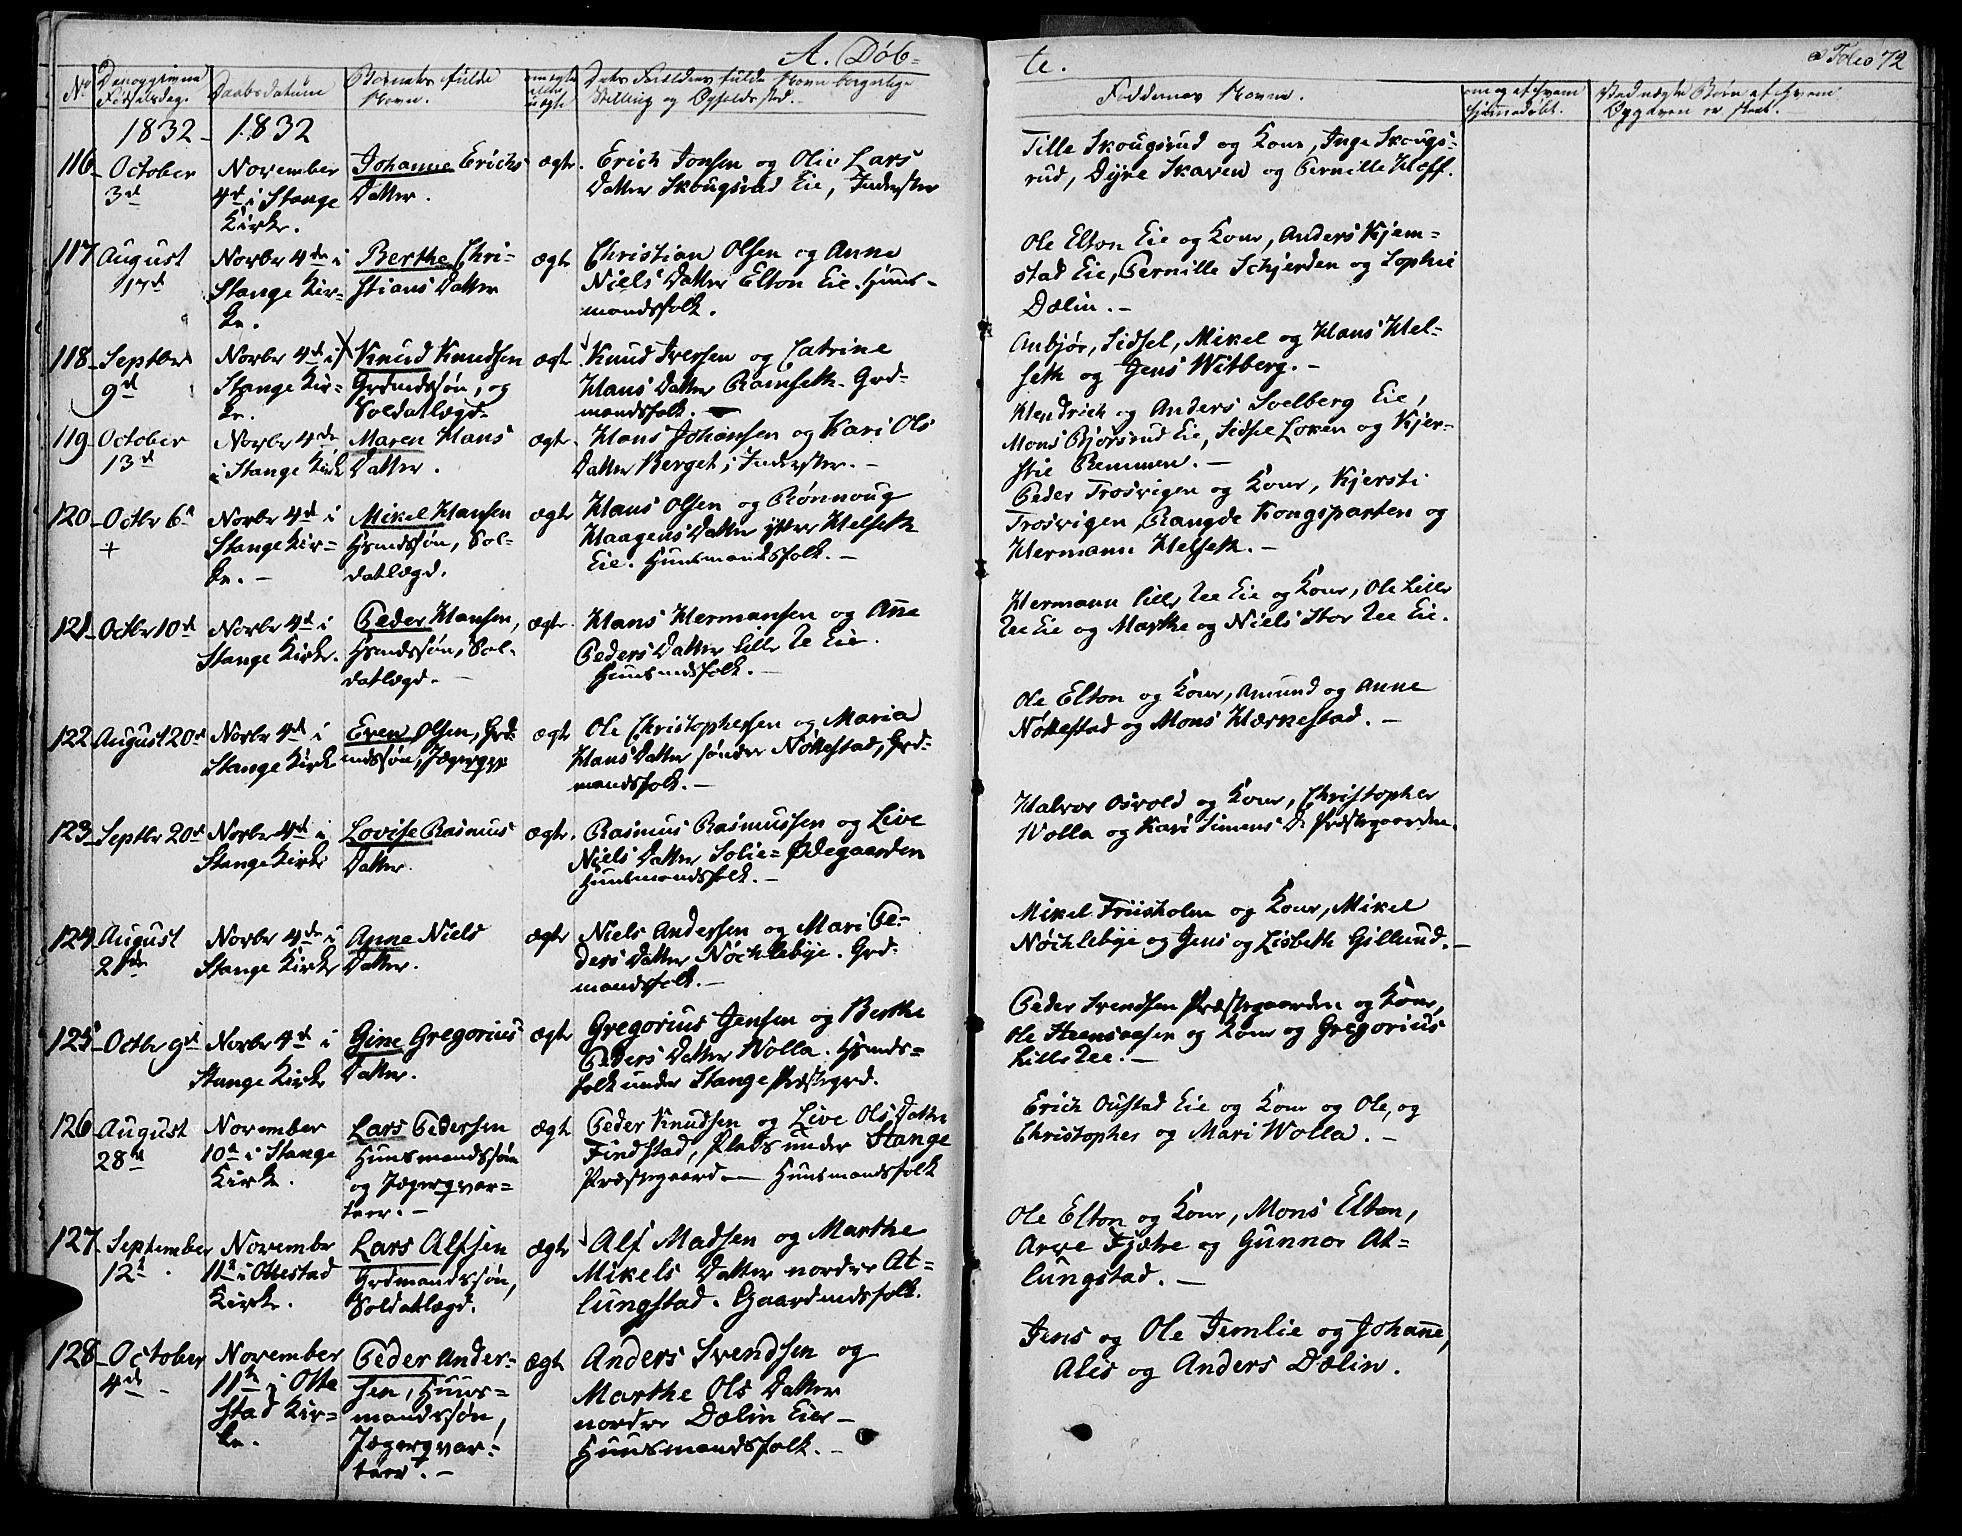 A. Døb-
te.
Folio 72
No
Den opgivne Fødselsdag.
Daabsdatum
Barnets fulde Navn.
om ægte eller uægte
Dets Forældres fulde Navn borgerlige Stilling og Opholdssted.
Faddernes Navne.
om og af hvem hjemmedøbt.
Ved uægte Børn af hvem Opgaven er skeet.
1832 1832
116. October 3d
November 4de i Stange Kirke.
Johanne Erichs Datter.
ægte.
Erich Jonsen og Olie Lars
Datter Skougsrud Eie, Inderster
Tille Skougsrud og Kone, Inge Skougs-
rud, Dyre Skaren og Pernille Hoff.
117 August 17d
Novbr 4de i Stange Kirke.
Berthe Chri-
stians Datter
ægte
Christian Olsen og Anne
Niels Datter Elton Eie. Huus-
mandsfolk.
Ole Elton Eie og Kone, Anders Kjem-
stad Eie, Pernille Schjerden og Sophie
Dælin.-
118. Septbr 9d
Novbr 4de i Stange Kirke.
Knud Knudsen
Grdmdssøn, og
Soldatlægd-
ægte
Knud Iversen og Catrine
Hans Datter Ramseth. Grd-
mandsfolk.
Anbjør, Sidsel, Mikel og Hans Hel-
seth og Jens Witberg.-
119. October 13d
Novbr 4de i Stange Kirke
Maren Hans
Datter.
ægte.
Hans Johansen og Kari Ols
Datter Berget, Inderster.-
Hendrich og Anders Soelberg Eie,
Mons Bjørsrud Eie, Sidsel Loken og Kjer-
stie Remmen.-
120- Octbr 6d
+
Novbr 4de i Stange Kirke.-
Mikel Hansen
Hsmdssøn, Sol-
datlægd.
ægte
Hans Olsen og Rønnoug
Haagens Datter ytre Helseth
Eie. Huusmandsfolk.-
Peder Trosvigen og Kone, Kjersti
Trosvigen, Rangde Kongsparten og
Hermann Helseth.-
121- Octbr 10d
Novbr 4de i
Stange Kirke.
Peder Hansen,
Hsmdssøn, Sol-
datlægd.-
ægte.
Hans Hermansen og Ane
Peders Datter lille Ree Eie.
Huusmdsfolk.-
Hermann lille Ree Eie og Kone, Ole Lille
Ree Eie og Marthe og Niels Stor Ree Eie.
122. August 20d
Novbr 4de i
Stange Kirke
Even Olsen, Grd-
mdssøn,
ægte
Ole Christophersen og Maria
Hans Datter søndre Nøkestad, Grd-
mandsfolk.-
Ole Elton og Kone, Amund og Anne
Nøkestad og Mons Hærnestad.-
123- Septbr 20d
Novbr 4de i
Stange Kirke
Lovise Rasmus
Datter.
ægte.
Rasmus Rasmussen og Live
Niels Datter Solie-Ødegaarden
Huusmandsfolk.-
Halvor Osvold og Kone, Christopher
Wolla og Kari Simens D. Præstegaarden.
124. August
Novbr 4de i
Stange Kirke
Anne Niels
Datter.
ægte
Niels Andersen og Mari Pe-
ders Datter Nøchlebye. Grd-
mandsfolk.-
Mikel Friisholm og Kone, Mikel
Nøchlebye og Jens og Lisbeth Gillund.-
125- Octbr 9d
Novbr 4de i
Stange Kirke
Gine Gregorius
Datter.
ægte
Gregorius Jensen og Berthe
Peders Datter Wolla. Hsmds-
folk under Stange Præstegrd.
Peder Svendsen Præstegaarden og Kone,
Ole Steensaasen og Kone og Gregorius
Lille Ree.-
126. August 28d
November
10de i Stange
Kirke.
Lars Pedersen
Huusmandssøn
og Jægerqvar-
teer.-
ægte
Peder Knudsen og Live Ols Datter
Findstad, Plads under Stange
Præstegaard- Huusmandsfolk
Erich Oustad Eie og Kone og Ole, og
Christopher og Mari Wolla.-
127. September
12d.
November
11de i Ottestad
Kirke.
Lars Alfsen
Grdmandssøn,
Soldatlægd.
ægte
Alf Madsen og Marthe
Mikels Datter nordre At-
lungstad. Gaardmdsfolk.
Ole Elton og Kone, Mons Elton,
Arve Fjætre og Gunnor At-
lungstad.-
128- October
4de-
November
11de i Otte
stad Kir-
ke.
Peder Ander-
sen, Huus-
mandssøn,
Jægerqvar-
teer.-
ægte
Anders Svendsen og
Marthe Ols Datter
nordre Dælin Eie-
Huusmandsfolk.-
Jens og Ole Jemlie og Johanne,
Ales og Anders Dælin.